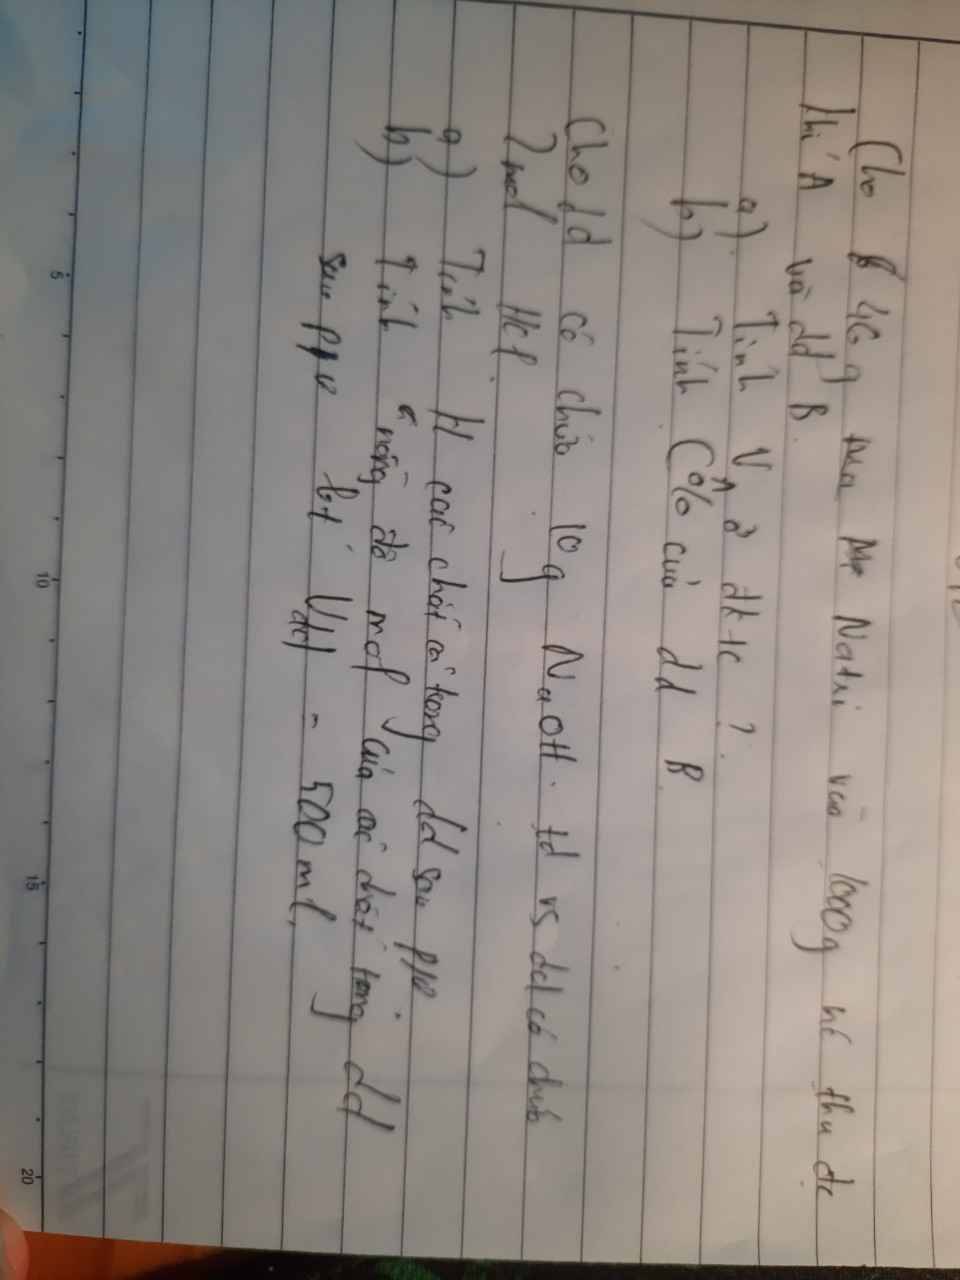 Cho 46 g Natri vào 1000g nc thu dc
khí A và dd B.
a) Tính V A ở đktc ?
b) Tính C% của dd B
Cho dd có chứa 10g NaOH td vs dd có chứa
2 mol HCl.
a) Tính kl các chất có trong dd sau ppứ.
b) Tính nồng độ mol của các chất trong dd
sau ppứ bt Vdd = 500 ml,
5
10
15
20